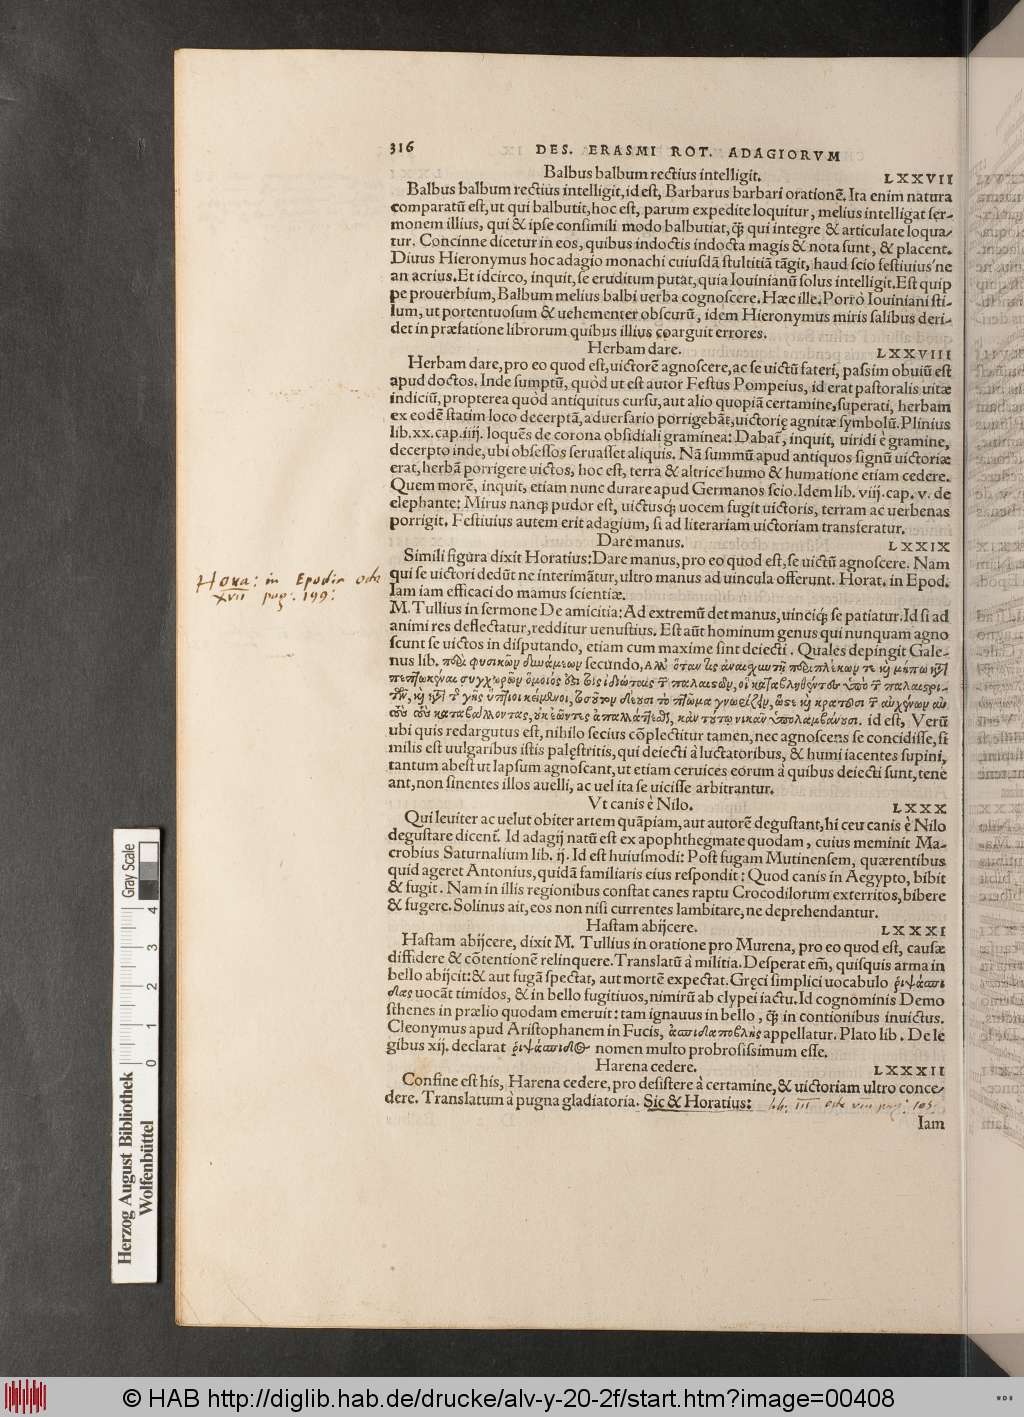 316 DES. ERASMI ROT. ADAGIORVM
Balbus balbum rectius intelligit. LXXVII
Balbus balbum rectius intelligit, id est, Barbarus barbari orationẽ. Ita enim natura
comparatũ est, ut qui balbutit, hoc est, parum expedite loquitur, melius intelligat ser-
monem illius, qui & ipse consimili modo balbutiat, q̃ qui integre & articulate loqua-
tur. Concinne dicetur in eos, quibus indoctis indocta magis & nota sunt, & placent.
Diuus Hieronymus hoc adagio monachi cuiusdã stultitiã tãgit, haud scio festiuius'ne
an acrius. Et idcirco, inquit, se eruditum putat, quia Iouinianũ solus intelligit. Est quip
pe prouerbium, Balbum melius balbi uerba cognoscere. Hæc ille. Porrò Iouiniani sti-
lum, ut portentuosum & uehementer obscurũ, idem Hieronymus miris salibus deri-
det in præfatione librorum quibus illius coarguit errores.
Herbam dare. LXXVIII
Herbam dare, pro eo quod est, uictorẽ agnoscere, ac se uictũ fateri, passim obuiũ est
apud doctos. Inde sumptũ, quòd ut est autor Festus Pompeius, id erat pastoralis uitæ
indiciũ, propterea quòd antiquitus cursu, aut alio quopiã certamine, superati, herbam
ex eodẽ statim loco decerptã, aduersario porrigebãt, uictorię agnitæ symbolũ. Plinius
lib. xx. cap. iiij. loquẽs de corona obsidiali graminea: Dabat̃, inquit, uiridi è gramine,
decerpto inde, ubi obsessos seruasset aliquis. Nã summũ apud antiquos signũ uictoriæ
erat, herbã porrigere uictos, hoc est, terra & altrice humo & humatione etiam cedere.
Quem morẽ, inquit, etiam nunc durare apud Germanos scio. Idem lib. viij. cap. v. de
elephante: Mirus nanq; pudor est, uictusq; uocem fugit uictoris, terram ac uerbenas
porrigit. Festiuius autem erit adagium, si ad literariam uictoriam transferatur.
Dare manus. LXXIX
Simili figura dixit Horatius: Dare manus, pro eo quod est, se uictũ agnoscere. Nam
qui se uictori dedũt ne interimãtur, ultro manus ad uincula offerunt. Horat. in Epod.
Hora: in Epodin Ode
xvii pag: 199:
Iam iam efficaci do mamus scientiæ.
M. Tullius in sermone De amicitia: Ad extremũ det manus, uinciq; se patiatur. Id si ad
animi res deflectatur, redditur uenustius. Est aũt hominum genus qui nunquam agno
scunt se uictos in disputando, etiam cum maxime sint deiecti. Quales depingit Gale-
nus lib. φυσικῶν δυνάμεων secundo,
id est, Verũ
ubi quis redargutus est, nihilo secius cõplectitur tamen, nec agnoscens se concidisse, si
milis est uulgaribus istis palęstritis, qui deiecti à luctatoribus, & humi iacentes supini,
tantum abest ut lapsum agnoscant, ut etiam ceruices eorum à quibus deiecti sunt, tene
ant, non sinentes illos auelli, ac uel ita se uicisse arbitrantur.
Vt canis è Nilo. LXXX
Qui leuiter ac uelut obiter artem quãpiam, aut autorẽ degustant, hi ceu canis è Nilo
degustare dicent̃. Id adagij natũ est ex apophthegmate quodam, cuius meminit Ma-
crobius Saturnalium lib. ij. Id est huiusmodi: Post fugam Mutinensem, quærentibus
quid ageret Antonius, quidã familiaris eius respondit: Quod canis in Aegypto, bibit
& fugit. Nam in illis regionibus constat canes raptu Crocodilorum exterritos, bibere
& fugere. Solinus ait, eos non nisi currentes lambitare, ne deprehendantur.
Hastam abijcere. LXXXI
Hastam abijcere, dixit M. Tullius in oratione pro Murena, pro eo quod est, causæ
diffidere & cõtentionẽ relinquere. Translatũ à militia. Desperat em̃, quisquis arma in
bello abijcit: & aut fugã spectat, aut mortẽ expectat. Gręci simplici uocabulo ῥιψάσπι
δας uocãt timidos, & in bello fugitiuos, nimirũ ab clypei iactu. Id cognominis Demo
sthenes in prælio quodam emeruit: tam ignauus in bello, q̃ in contionibus inuictus.
Cleonymus apud Aristophanem in Fucis, ἀσπιδαποβλής appellatur. Plato lib. De le
gibus xij. declarat ῥιψάσπιδος nomen multo probrosissimum esse.
Harena cedere. LXXXII
Confine est his, Harena cedere, pro desistere à certamine, & uictoriam ultro conce-
dere. Translatum à pugna gladiatoria. Sic & Horatius: lib. III ode viii pag: 105
Iam
Gray Scale
0 1 2 3 4
Herzog August Bibliothek
Wolfenbüttel
© HAB http://diglib.hab.de/drucke/alv-y-20-2f/start.htm?image=00408